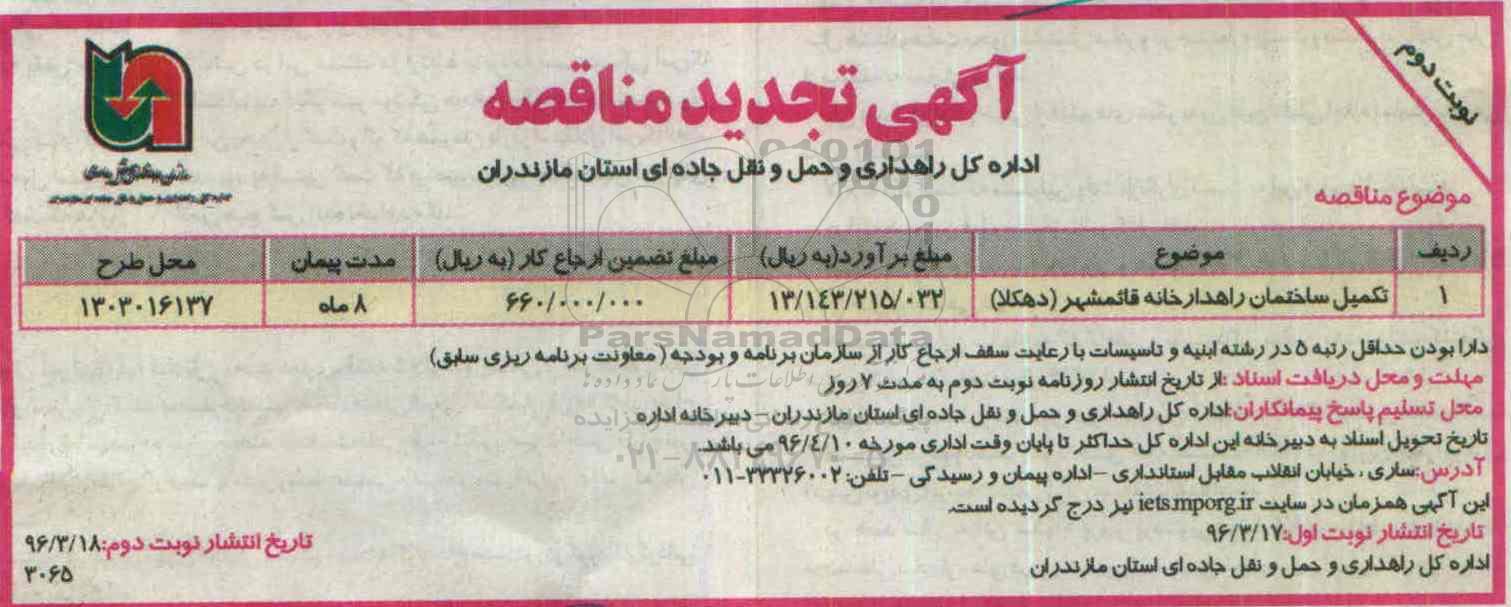 نوبت دوم
آگهی تجدید مناقصه
اداره کل راهداری و حمل و نقل جاده ای استان مازندران
موضوع مناقصه
ردیف موضوع مبلغ برآورد(به ریال) مبلغ تضمین ارجاع کار (به ریال) مدت پیمان محل طرح
۱ تکمیل ساختمان راهدارخانه قائمشهر (دهکلا) ۱۳/۱۴۳/۲۱۵/۰۳۲ ۶۶۰/۰۰۰/۰۰۰ ۸ ماه ۱۳۰۳۰۱۶۱۳۷
دارا بودن حداقل رتبه ۵ در رشته ابنیه و تاسیسات با رعایت سقف ارجاع کار از سازمان برنامه و بودجه ( معاونت برنامه ریزی سابق)
مهلت و محل دریافت اسناد :از تاریخ انتشار روزنامه نوبت دوم به مدت ۷ روز
محل تسلیم پاسخ پیمانکاران:اداره کل راهداری و حمل و نقل جاده ای استان مازندران – دبیرخانه اداره
تاریخ تحویل اسناد به دبیرخانه این اداره کل حداکثر تا پایان وقت اداری مورخه ۹۶/۴/۱۰ می باشد.
آدرس:ساری ، خیابان انقلاب مقابل استانداری –اداره پیمان و رسیدگی –تلفن: ۳۳۳۲۶۰۰۲-۰۱۱
این آگهی همزمان در سایت iets.mporg.ir نیز درج گردیده است.
تاریخ انتشار نوبت اول:۹۶/۳/۱۷
تاریخ انتشار نوبت دوم:۹۶/۳/۱۸
اداره کل راهداری و حمل و نقل جاده ای استان مازندران
۳۰۶۵
ParsNamadData